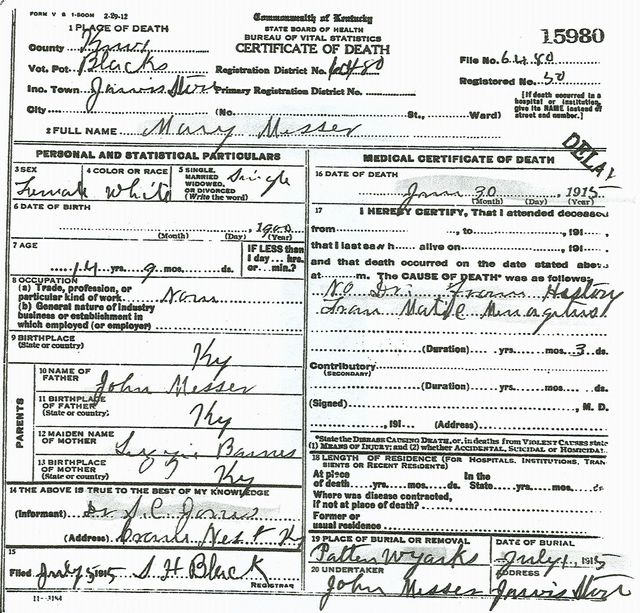 FORM V S 1-500M 2-29-12
Commonwealth of Kentucky
STATE BOARD OF HEALTH
BUREAU OF VITAL STATISTICS
CERTIFICATE OF DEATH
15980
1 PLACE OF DEATH
County Knox
Vot. Pct. Blacks
Registration District No. 6480
File No. 6480
Inc. Town Jarvis Store
Primary Registration District No.
Registered No. 30
City (No. St., Ward)
[If death occurred in a hospital or institution, give its NAME instead of street and number.]
2 FULL NAME Mary Messer
DELAY
PERSONAL AND STATISTICAL PARTICULARS
3 SEX Female
4 COLOR OR RACE White
5 SINGLE, MARRIED WIDOWED, OR DIVORCED (Write the word) Single
6 DATE OF BIRTH
, 1900
(Month) (Day) (Year)
7 AGE
14 yrs. 9 mos. ds.
IF LESS than 1 day... hrs. or... min.?
8 OCCUPATION
(a) Trade, profession, or particular kind of work None
(b) General nature of industry business or establishment in which employed (or employer)
9 BIRTHPLACE
(State or country) Ky
PARENTS
10 NAME OF FATHER John Messer
11 BIRTHPLACE OF FATHER (State or country) Ky
12 MAIDEN NAME OF MOTHER Barnes
13 BIRTHPLACE OF MOTHER (State or country) Ky
14 THE ABOVE IS TRUE TO THE BEST OF MY KNOWLEDGE
(Informant) Dr S.C. Jones
(Address) Crans Nest Ky
15
Filed July 5 1915 S H Black
REGISTRAR
11--3184
MEDICAL CERTIFICATE OF DEATH
16 DATE OF DEATH
June 30, 1915
(Month) (Day) (Year)
17 I HEREBY CERTIFY, That I attended deceased
from , to , 191
that I last saw h alive on , 191
and that death occurred on the date stated above
at m. The CAUSE OF DEATH* was as follows:
No Dr. From History
(Duration) yrs. mos. 3 ds.
Contributory
(SECONDARY)
(Duration) yrs. mos. ds.
(Signed) , M. D.
, 191 (Address)
*State the DISEASE CAUSING DEATH, or, in deaths from VIOLENT CAUSES state
(1) MEANS OF INJURY; and (2) whether ACCIDENTAL, SUICIDAL or HOMICIDAL
18 LENGTH OF RESIDENCE (FOR HOSPITALS, INSTITUTIONS, TRAN
SIENTS OR RECENT RESIDENTS)
At place of death yrs. mos. ds. In the State yrs. mos. ds
Where was disease contracted, if not at place of death?
Former or usual residence
19 PLACE OF BURIAL OR REMOVAL
DATE OF BURIAL
July 1, 1915
20 UNDERTAKER John Messer
ADDRESS Jarvis Store